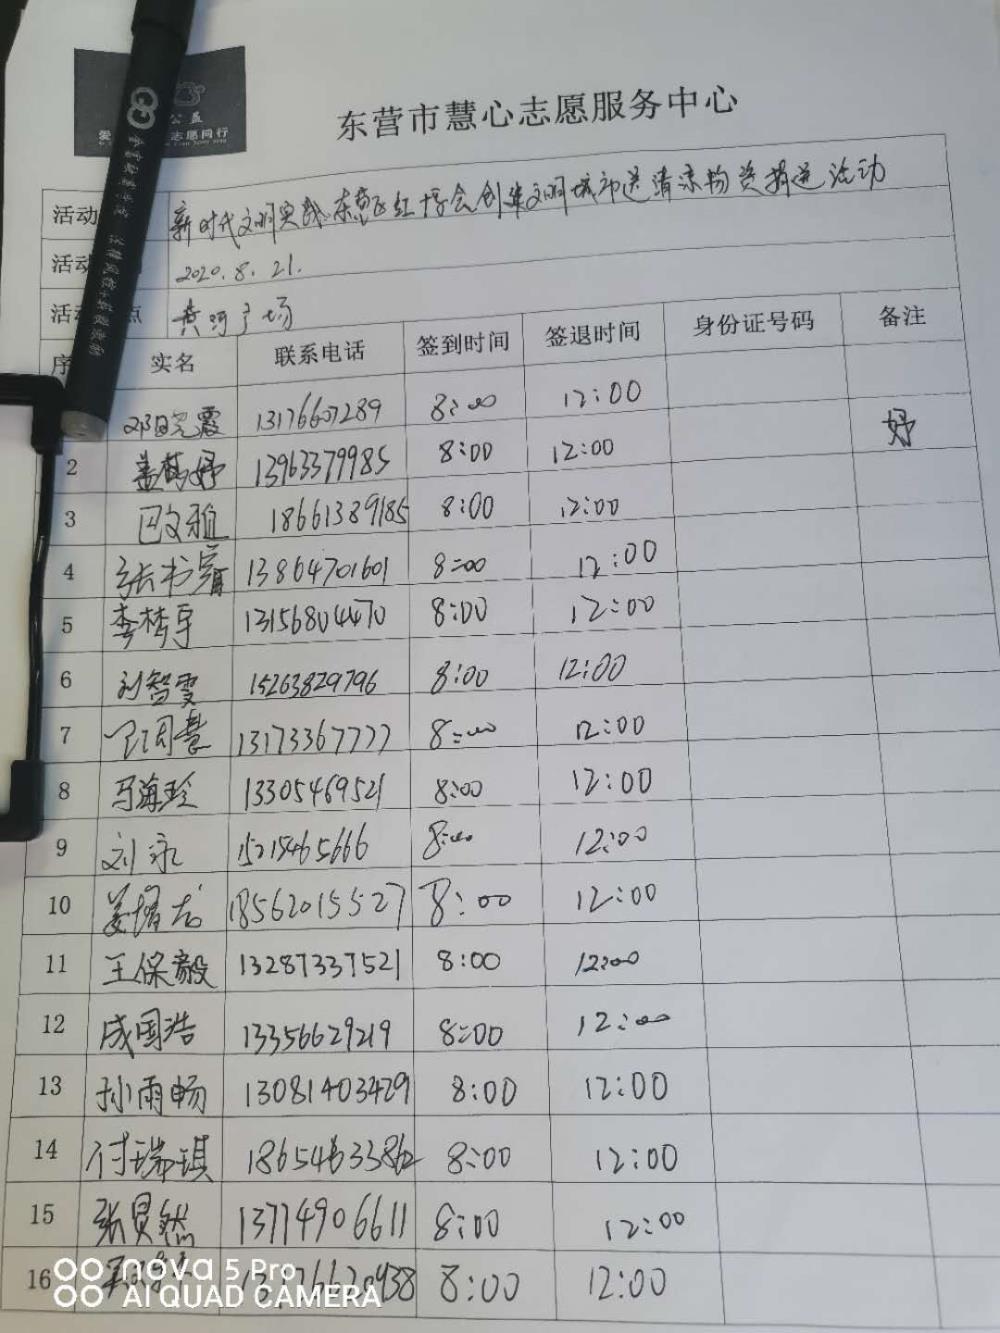 公益
志愿同行
东营市慧心志愿服务中心
活动 新时代文明实践 东营区红十字会创建文明城市送清凉物资捐送活动
活动 2020.8.21.
活动 点 黄河广场
序 实名 联系电话 签到时间 签退时间 身份证号码 备注
邓晓霞 13176607289 8:00 12:00
2 盖梦妤 13963379985 8:00 12:00 妤
3 巴文雅 18661389185 8:00 12:00
4 张书宵 13864701601 8:00 12:00
5 李梦宇 13156804470 8:00 12:00
6 刘智雯 15263829796 8:00 12:00
7 13173367777 8:00 12:00
8 马海玲 13305469521 8:00 12:00
9 刘永 15215465666 8:00 12:00
10 姜增志 18562015527 8:00 12:00
11 王保毅 13287337521 8:00 12:00
12 成国浩 13356629219 8:00 12:00
13 孙雨畅 13081403429 8:00 12:00
14 付瑞琪 8:00 12:00
15 张昊然 13714906611 8:00 12:00
16 8:00 12:00
nova 5 Pro
AI QUAD CAMERA